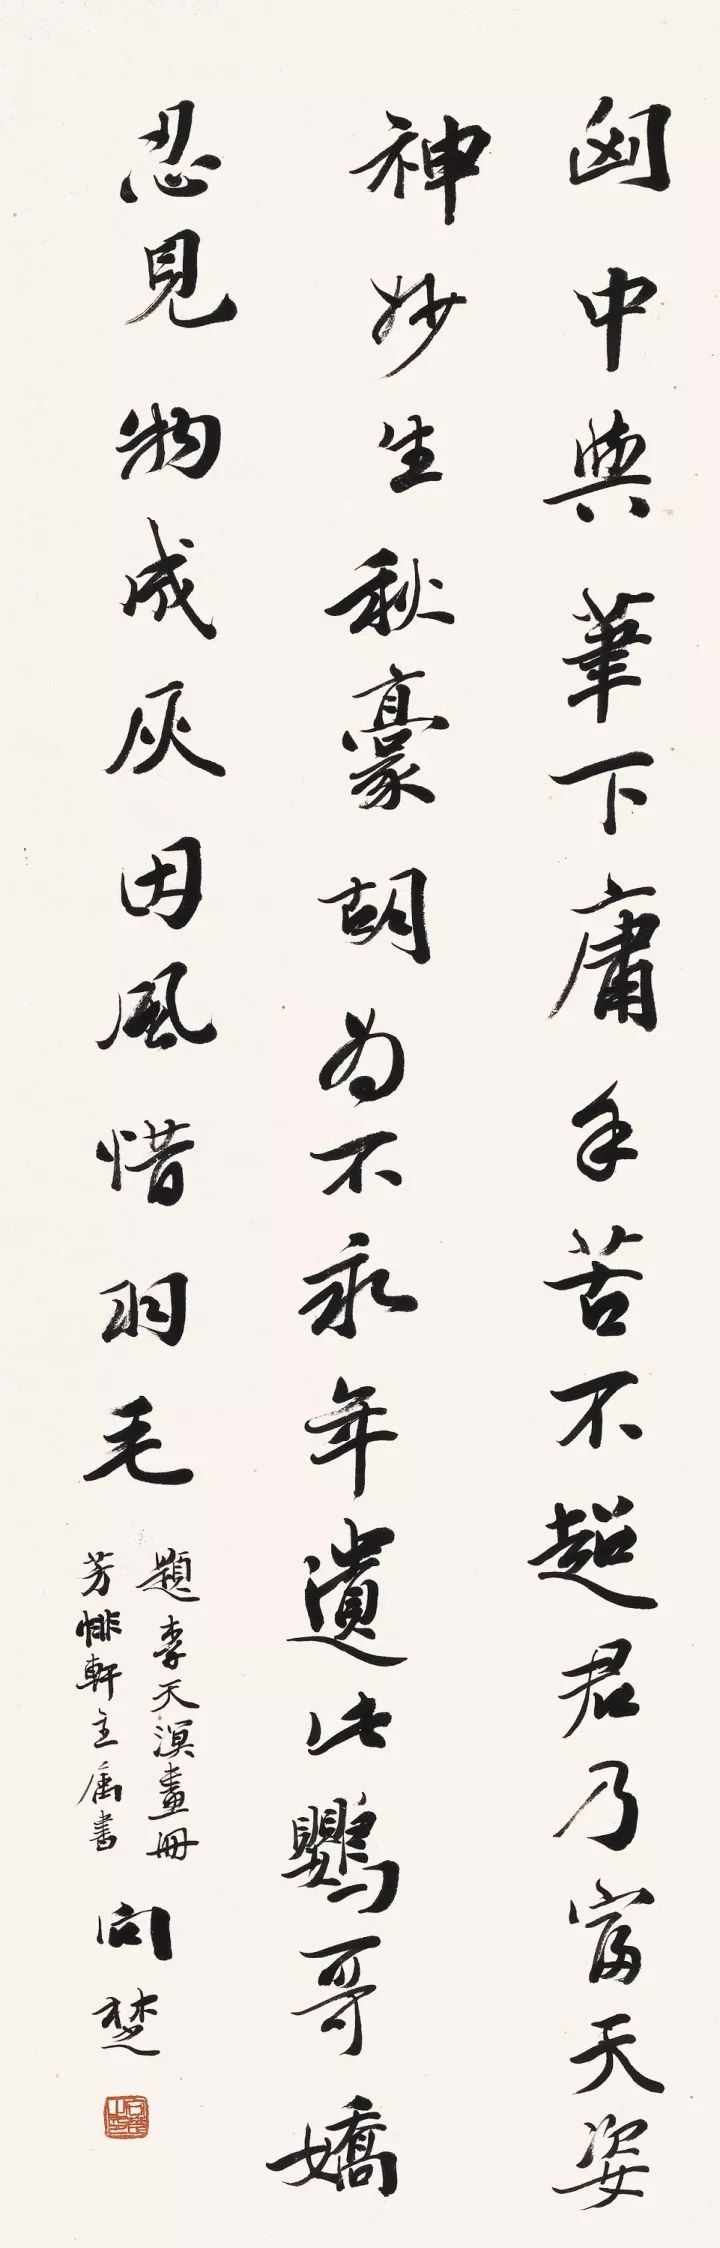 匈中與筆下庸手苦不超君乃富天姿
神妙生秋豪胡為不永年遺此鸚哥嬌
忍見物成灰因風惜羽毛
題李天溟畫冊
芳悱軒主屬書
向楚